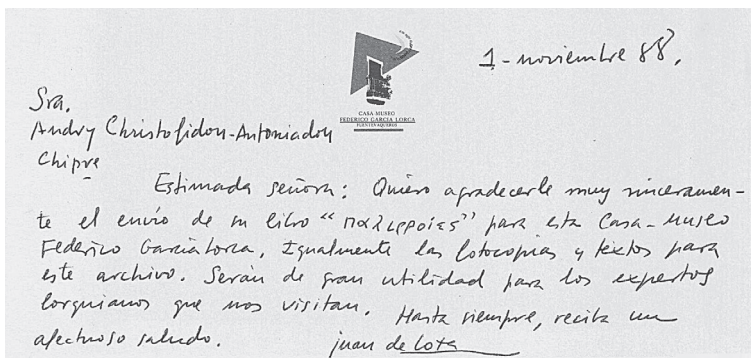 1-noviembre 88.
CASA MUSEO
FEDERICO GARCIA LORCA
FUENTEVAQUEROS
Sra.
Andry Christofidou-Antoniadou
Chipre
Estimada señora: Quiero agradecerle muy sinceramen-
te el envío de su libro "παλιρροίες" para esta Casa-Museo
Federico García Lorca, Igualmente las fotocopias y textos para
este archivo. Serán de gran utilidad para los expertos
lorquianos que nos visitan. Hasta siempre, reciba un
afectuoso saludo.
juan de Loxa